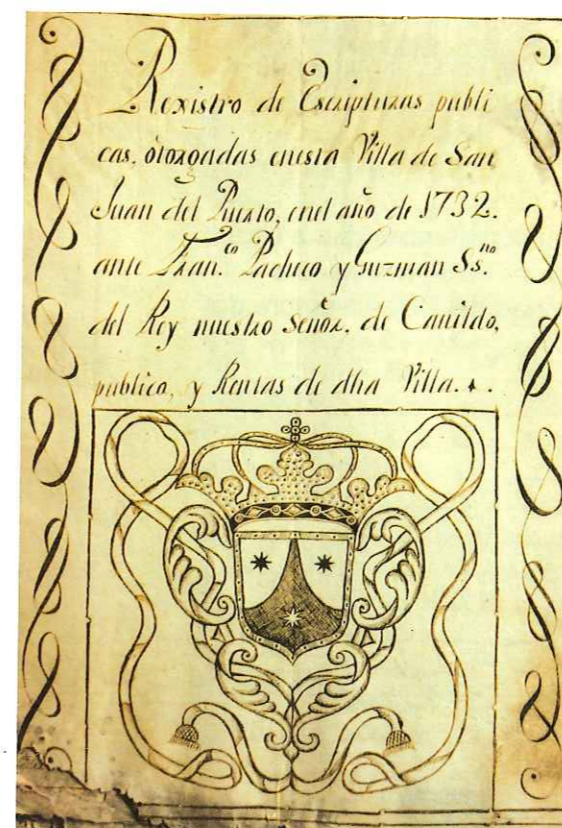 Rexistro de Escripturas publi
cas, otorgadas enesta Villa de San
Juan del Puerto, enel año de 1732.
ante Fran.co Pacheco y Guzman Ss.no
del Rey nuestro Señor, de Cauildo,
publico, y Rentas de dha Villa.